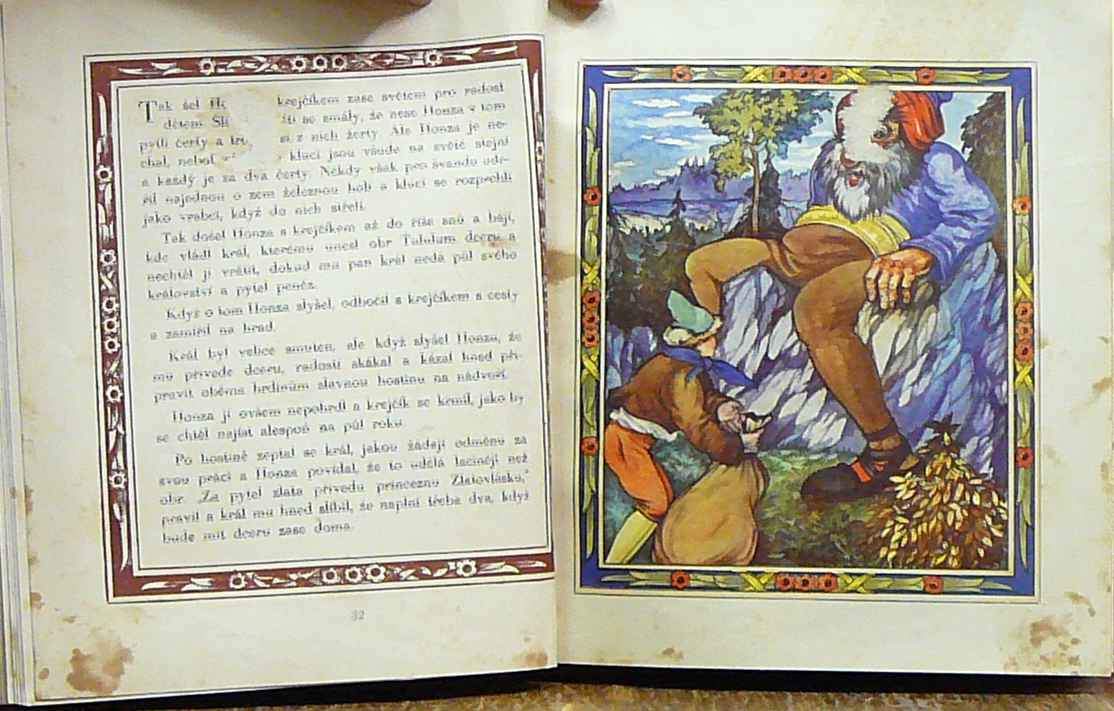 Tak šel krejčíkem zase světem pro radost
dětem. se smály, že nese Honza v tom
pytli čerty a z nich žerty. Ale Honza je ne-
chal, neboť kluci jsou všude na světě stejní
a každý je za dva čerty. Někdy však pro švandu ude-
řil najednou o zem železnou holí a kluci se rozprchli
jako vrabci, když do nich střelí.
Tak došel Honza s krejčíkem až do říše snů a bájí,
kde vládl král, kterému unesl obr Tululum dceru a
nechtěl jí vrátit, dokud mu pan král nedá půl svého
království a pytel peněz.
Když o tom Honza slyšel, odbočil s krejčíkem s cesty
a zamířil na hrad.
Král byl velice smuten, ale když slyšel Honzu, že
mu přivede dceru, radostí skákal a kázal hned při-
pravit oběma hrdinům slavnou hostinu na nádvoří.
Honza jí ovšem nepohrdl a krejčík se krmil, jako by
se chtěl najíst alespoň na půl roku.
Po hostině zeptal se král, jakou žádají odměnu za
svou práci a Honza povídal, že to udělá laciněji než
obr. „Za pytel zlata přivedu princeznu Zlatovlásku,"
pravil a král mu hned slíbil, že naplní třeba dva, když
bude mít dceru zase doma.
32